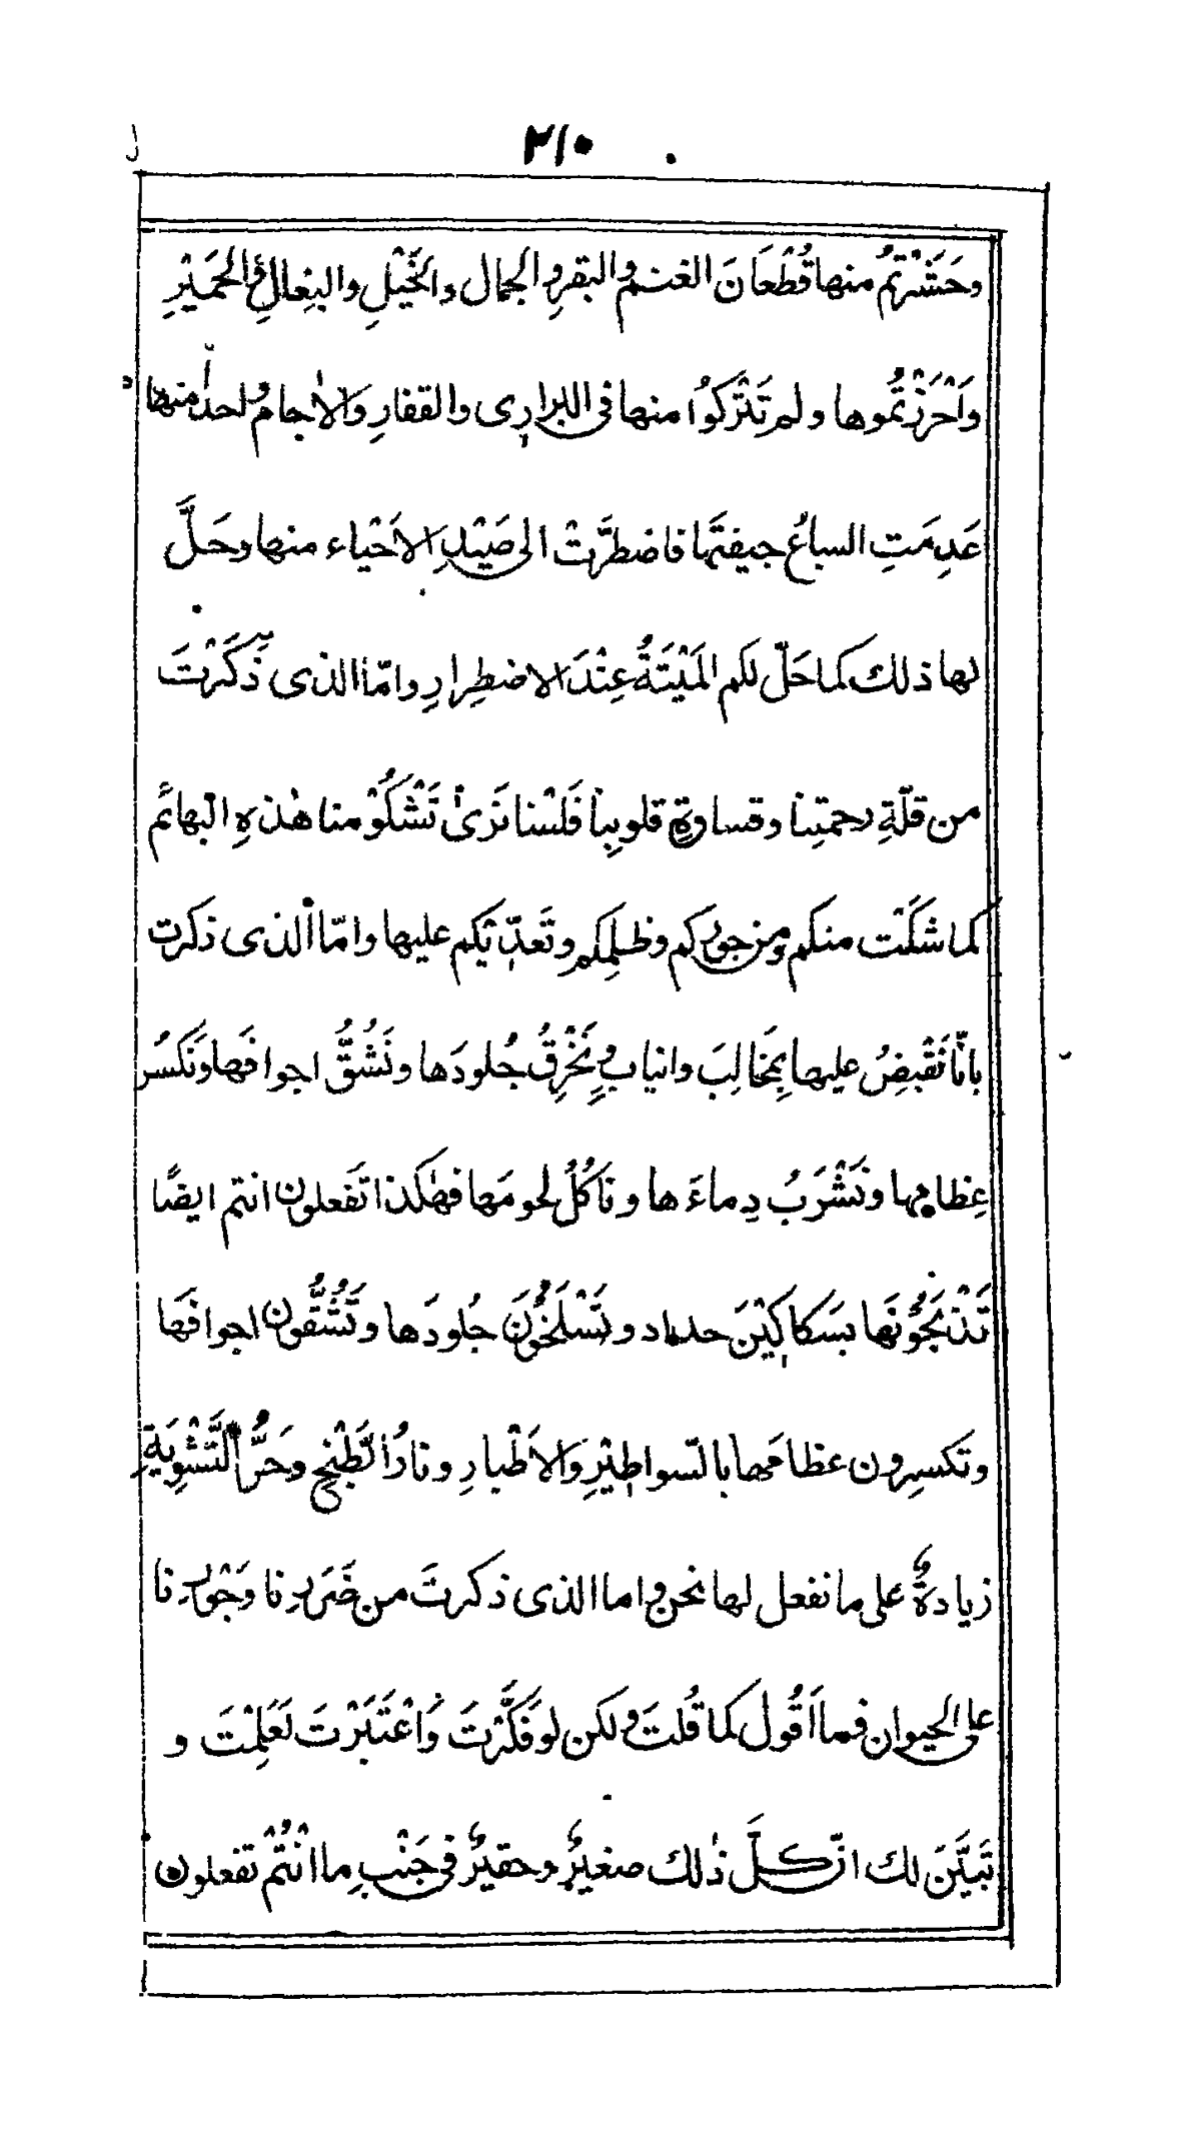 ٢١٥
وحَشَرْتُمُ منها قُطْعَانَ الغنم والبقرِ والجمال والخَيْلِ والبِغالِ والحَمَيْرِ
وَاَحْرَزْتُموها ولم تَتْرَكوُا منها فى البرارِى والقفارِ وَالاٰجامِ احدًا منها
عَدِمَتِ السباعُ جيفَتَها فاضطرَّتْ الى صَيْدِ الاَحْياء منها وحَلَّ
لها ذلك كما حَلّ لكم المَيْتَةُ عِنْدَ الاضطِرارِ وامّا الذى ذَكَرْتَ
من قلّةِ رحمتِنا وقساوةِ قلوبِنا فَلَسْنا نَرَىٰ تَشْكُوْ منا هٰذهِ البهائم
كما شكَتْ منكم ومن جورِكم وظلمِكم وتَعدّيكم عليها وامّا الذى ذكرت
بانّا نَقْبِضُ عليها بِمَخالِبَ وانيابٍ ونَخْرِقُ جُلودَها ونَشُقُّ اجوافَها ونَكسُر
عِظامِها ونَشْرَبُ دِماءَها وناكُلُ لحومَها فهٰكذا تَفعلون انتم ايضًا
تَذْبَحُوْنَها بسَكاكَيْنَ حداد وتَسْلَخُوْنَ جُلودَها وتَشُقُّون اجوافَها
وتَكسِرون عظامَها بالسّواطِيْرِ وَالاَطْبارِ ونارُ الطَّبْخِ وحَرُّ التَّشْوِيَةِ
زيادةٌ على ما نفعل لها نحن واما الذى ذكرتَ من ضَرَرِنا وجَوْرِنا
على الحيوان فما اَقُول كما قُلتَ ولكن لو فَكَّرْتَ وَاعْتَبَرْتَ لَعَلِمْتَ و
تَبَيَّنَ لك انّ كلَّ ذٰلك صغيرٌ وحقيرٌ فى جَنْبِ ما انْتُمْ تفعلون